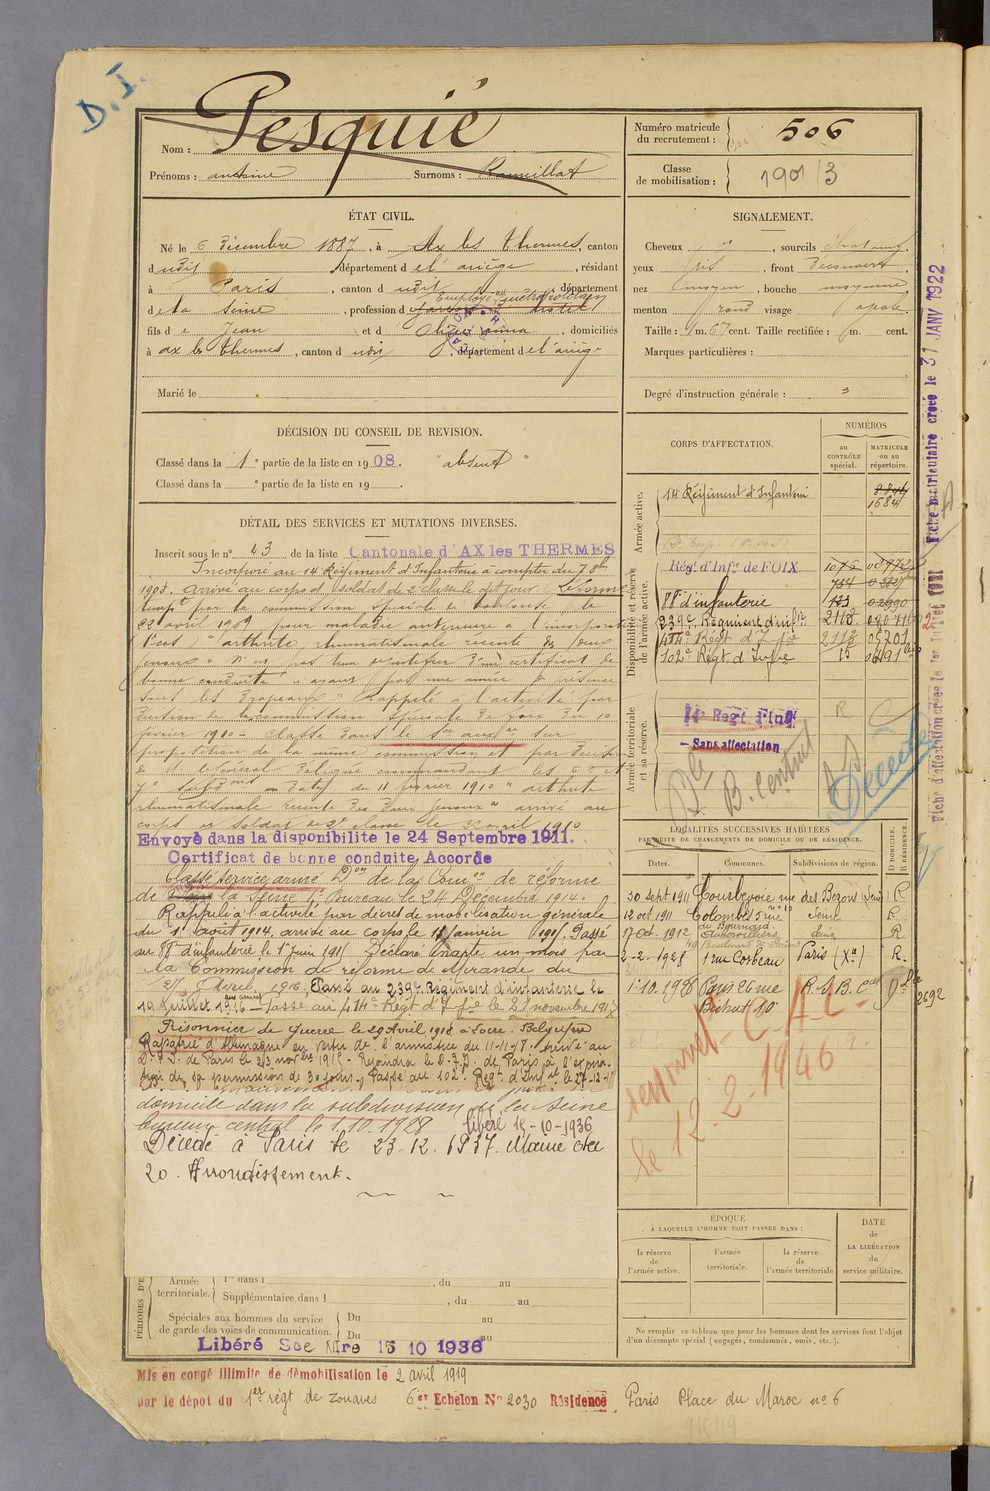 D. I.
Pesquié
Nom :
Prénoms : antoine Surnoms : Ramillat
Numéro matricule du recrutement : 506
Classe de mobilisation : 1901/3
ÉTAT CIVIL.
Né le 6 Décembre 1887, à Ax les thermes, canton
d udit, département d e l'ariège, résidant
à Paris, canton d udit, département
d e la Seine, profession d
fils d e Jean et d anna, domiciliés
à ax les thermes, canton d udit, département d e l'ariège
Marié le
SIGNALEMENT.
Cheveux, sourcils chatains
yeux gris, front Découvert
nez moyen, bouche moyenne
menton rond visage ovale
Taille : 1 m. 67 cent. Taille rectifiée : m. cent.
Marques particulières :
Degré d'instruction générale : 3
DÉCISION DU CONSEIL DE REVISION.
Classé dans la 1e partie de la liste en 1908. "absent"
Classé dans la e partie de la liste en 19 .
DÉTAIL DES SERVICES ET MUTATIONS DIVERSES.
Inscrit sous le n° 43 de la liste Cantonale d'AX les THERMES
Incorporé au 14 Régiment d'Infanterie à compter du 7 8bre
1908. arrivé au corps et soldat de 2e classe le dit jour. Réformé
tempre par la commission spéciale de toulouse le
22 avril 1909 pour maladie antérieure à l'incorporation
"arthrite rhumatismale récente des deux
genoux" N'a pas justifier d'un certificat de
bonne conduite "ayant pas une année de présence
sous les Drapeaux" rappelé à l'activité par
décision de la commission spéciale de foix du 10
février 1910 - classé dans le Sce auxre sur
proposition de la même commission et par décision
de Mr le Général Délégué commandant les
en date du 11 février 1910 "arthrite
rhumatismale récente des deux genoux" arrivé au
corps et soldat de 2e classe le avril 1910
Envoyé dans la disponibilité le 24 Septembre 1911.
Certificat de bonne conduite Accordé
Classé service armé Don de la Comon de réforme
de la Seine Bureau le 24 Décembre 1914.
Rappelé à l'activité par décret de mobilisation générale
du 1er août 1914, arrivé au corps le 11 janvier 1915. Passé
au 88e d'infanterie le 1er Juin 1915 Déclaré inapte un mois par
la Commission de réforme de Mirande du
27 Avril 1916, Passé au 239e Régiment d'infanterie le
19 Juillet 1916 - Passé au 414e Régt d'Ifie le 21 novembre 1917
Prisonnier de Guerre le 29 Avril 1918 à Locre. Belgique
Rapatrié d'Allemagne en vertu de l'armistice du 11-11-18. Arrivé au
D. T. I. de Paris le 23 novbre 1918 - Rejoindra le D. T. I. de Paris à l'expira-
tion de sa permission de 30 jours, Passé au 102e Régt d'Infie le 27-12-18
domicile dans la subdivision de la Seine
bureau central le 1.10.1928 libéré 15-10-1936
Décédé à Paris le 23.12.1937. Mairie du
20. Arrondissement.
CORPS D'AFFECTATION.
NUMÉROS
au CONTRÔLE spécial.
MATRICULE ou au répertoire.
Armée active.
14 Régiment d'Infanterie
1584
Disponibilité et réserve de l'armée active.
Régt d'Infie de FOIX
88e d'infanterie
239e Régiment d'infie
414e Régt d'Ifie 2118 05701
102e Régt d'Infie 15
Armée territoriale et sa réserve.
14e Régt d'Infie
- Sans affectation
R C
B. Central
Décédé
Fiche matriculaire créée le 31 JANV 1922
Fiche d'affectation créée le 1er Juillet 1921
LOCALITÉS SUCCESSIVES HABITÉES
PAR SUITE DE CHANGEMENTS DE DOMICILE OU DE RÉSIDENCE.
Dates. Communes. Subdivisions de région. D DOMICILE. R RÉSIDENCE.
30 Sept 1911 Courbevoie rue des Bezons Seine R
12 oct 1911 Colombes Seine R.
17 Oct 1912 Aubervilliers Seine R.
2-2-1928 1 rue Corbeau Paris (Xe) R.
1.10.1928 Paris 26 rue Bichat 10e R. S. B. Cal D
2692
rayonnet C-A-C-
le 12-2-1946
EPOQUE
A LAQUELLE L'HOMME DOIT PASSER DANS :
la réserve de l'armée active.
l'armée territoriale.
la réserve de l'armée territoriale
DATE de LA LIBÉRATION du service militaire.
Ne remplir ce tableau que pour les hommes dont les services font l'objet
d'un décompte spécial (engagés, condamnés, omis, etc.).
PÉRIODES D'E
Armée territoriale. 1re dans l , du au
Supplémentaire dans l , du au
Spéciales aux hommes du service de garde des voies de communication. Du au
Du au
Libéré Sce Mre 15 10 1936
Mis en congé illimité de démobilisation le 2 avril 1919
par le dépot du 1er régt de Zouaves 6e Echelon N° 2030 Résidence Paris Place du Maroc no 6